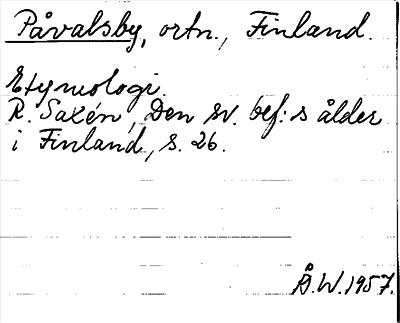 Påvalsby, ortn., Finland.
Etymologi.
R. Saxén, Den sv. bef:s ålder
i Finland, s. 26.
Å.W. 1957.